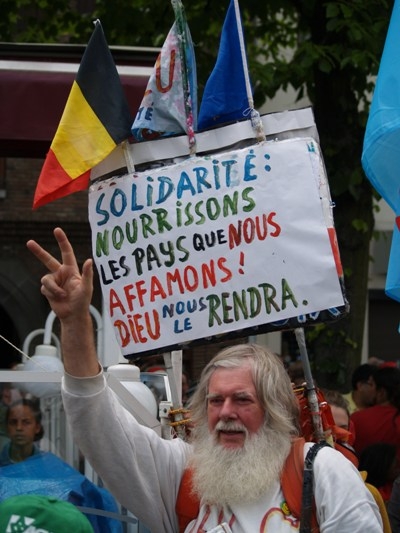 SOLIDARITÉ:
NOURRISSONS
LES PAYS QUE NOUS
AFFAMONS!
DIEU NOUS LE RENDRA.